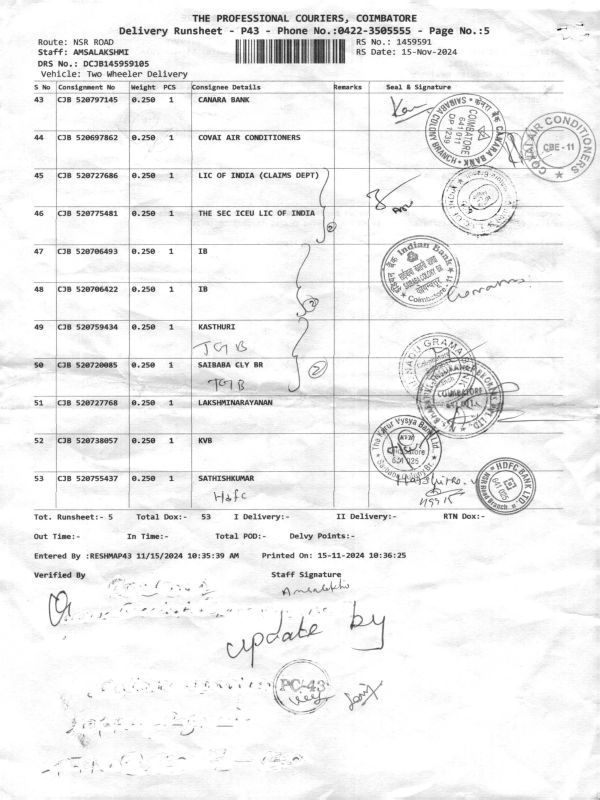 THE PROFESSIONAL COURIERS, COIMBATORE
Delivery Runsheet - P43 - Phone No.:0422-3505555 - Page No.:5
Route: NSR ROAD RS No.: 1459591
Staff: AMSALAKSHMI RS Date: 15-Nov-2024
DRS No.: DCJB145959105
Vehicle: Two Wheeler Delivery
S No Consignment No Weight PCS Consignee Details Remarks Seal & Signature
43 CJB 520797145 0.250 1 CANARA BANK
CANARA BANK
COIMBATORE
641 011
DP 1239
44 CJB 520697862 0.250 1 COVAI AIR CONDITIONERS
COVAI AIR CONDITIONERS
CBE - 11
45 CJB 520727686 0.250 1 LIC OF INDIA (CLAIMS DEPT)
46 CJB 520775481 0.250 1 THE SEC ICEU LIC OF INDIA
2
47 CJB 520706493 0.250 1 IB
Indian Bank
SAIBABA COLONY BR
Coimbatore - 11
48 CJB 520706422 0.250 1 IB
2
49 CJB 520759434 0.250 1 KASTHURI
TGB
50 CJB 520720085 0.250 1 SAIBABA CLY BR
TGB
2
COIMBATORE
51 CJB 520727768 0.250 1 LAKSHMINARAYANAN
52 CJB 520738057 0.250 1 KVB
The Karur Vysya Bank Ltd.
KVB
Coimbatore
641 025
53 CJB 520755437 0.250 1 SATHISHKUMAR
Hdfc
HDFC BANK LTD
641 025
Tot. Runsheet:- 5 Total Dox:- 53 I Delivery:- II Delivery:- RTN Dox:-
Out Time:- In Time:- Total POD:- Delvy Points:-
Entered By :RESHMAP43 11/15/2024 10:35:39 AM Printed On: 15-11-2024 10:36:25
Verified By Staff Signature
update by
PC-43